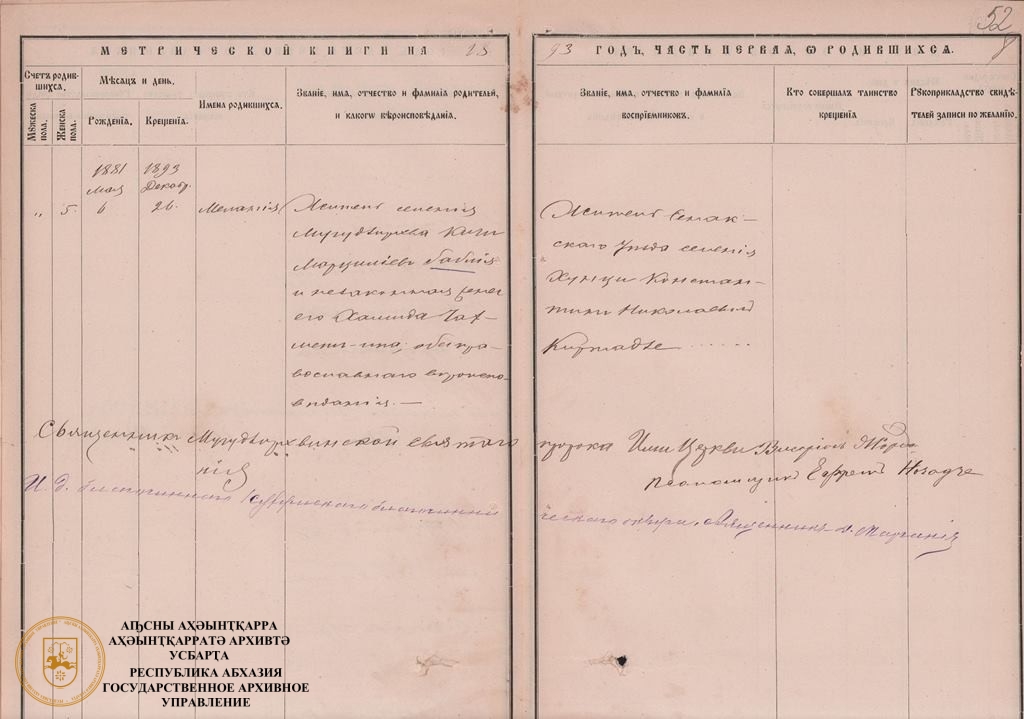 52
МЕТРИЧЕСКОЙ КНИГИ НА 18
93 ГОДЪ, ЧАСТЬ ПЕРВАЯ, Ѡ РОДИВШИХСЯ.
Счетъ родив-
шихся.
Мѣсяцъ и день.
Мꙋжеска
пола.
Женска
пола.
Рожденія.
Крещенія.
Имена родившихся.
Званіе, имя, отчество и фамилія родителей,
и какогѡ вѣроисповѣданія.
Званіе, имя, отчество и фамилія
воспріемниковъ.
Кто совершалъ таинство
крещенія
Рꙋкоприкладство свидѣ-
телей записи по желанію.
1881
Мая
6
1893
Декабр.
26.
„ 5.
Меланія
Житель селенія
Мугудзирхва Кичи
Марцилiевъ Баблія
и незаконная жена
его Халида Чах-
мепи-ипа; оба пра-
вославнаго вѣроиспо-
вѣданія. —
Житель Сенак-
скаго Уѣзда селенія
Хунци Констан-
тинъ Николаевъ
Киртадзе . . . . . .
Священникъ Мугудзирхвинской святого
пророка Иліи Церкви Виссаріонъ Жорда-
нія
Псаломщикъ Ефремъ Нозадзе
И. д. благочиннаго благочинни
ческаго округа, священникъ
АԤСНЫ АҲӘЫНҬҚАРРА
АҲӘЫНҬҚАРРАТӘ АРХИВТӘ
УСБАРҬА
РЕСПУБЛИКА АБХАЗИЯ
ГОСУДАРСТВЕННОЕ АРХИВНОЕ
УПРАВЛЕНИЕ